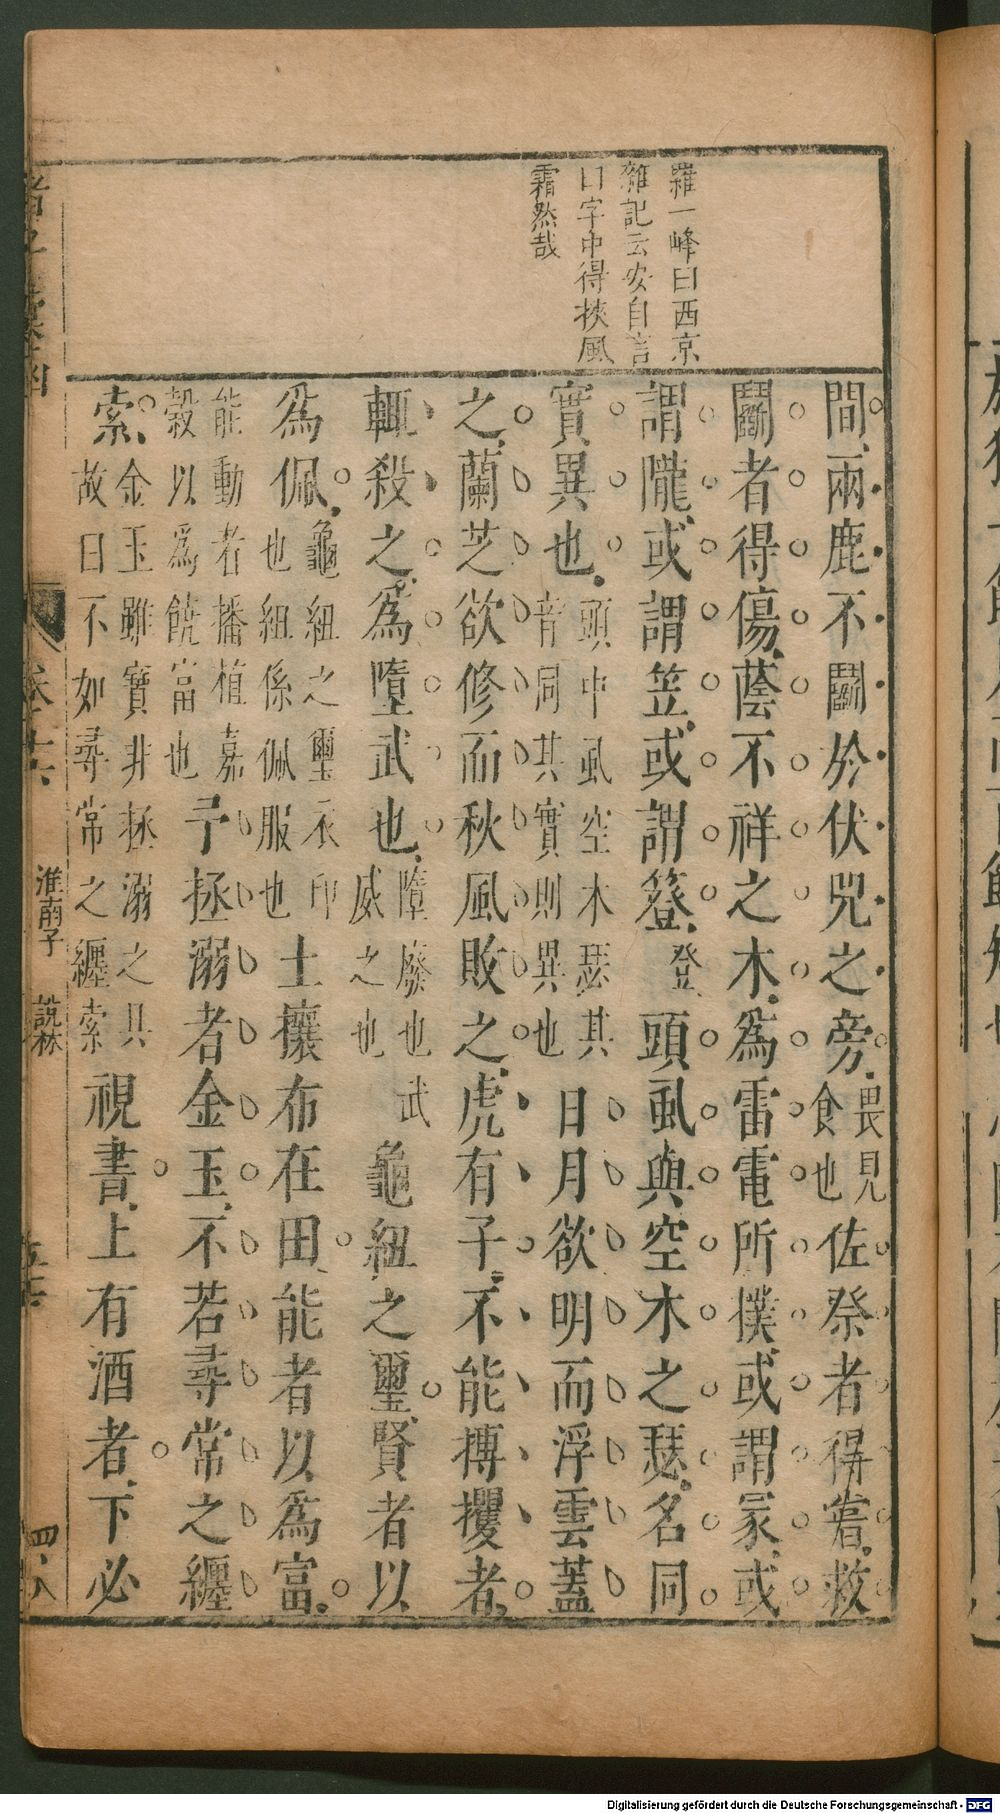 羅一峰曰西京
雜記云安自言
口字中得挾風
霜然哉
間兩鹿不鬭於伏兕之旁畏見食也佐祭者得嘗救
鬭者得傷蔭不祥之木為雷電所撲或謂冢或
謂隴或謂笠或謂簦登頭虱與空木之瑟名同
實異也頭中虱空木瑟其音同其實則異也日月欲明而浮雲蓋
之蘭芝欲修而秋風敗之虎有子不能搏攫者
輒殺之為墮武也墮廢也武威之也龜紐之璽賢者以
為佩龜紐之璽衣印也紐係佩服也土壤布在田能者以為富
能動者播植嘉穀以為饒富也予拯溺者金玉不若尋常之纏
索金玉雖寶非拯溺之具故曰不如尋常之纏索視書上有酒者下必
淮南子 說林
四八
Digitalisierung gefördert durch die Deutsche Forschungsgemeinschaft - DFG